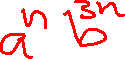 aⁿ b³ⁿ